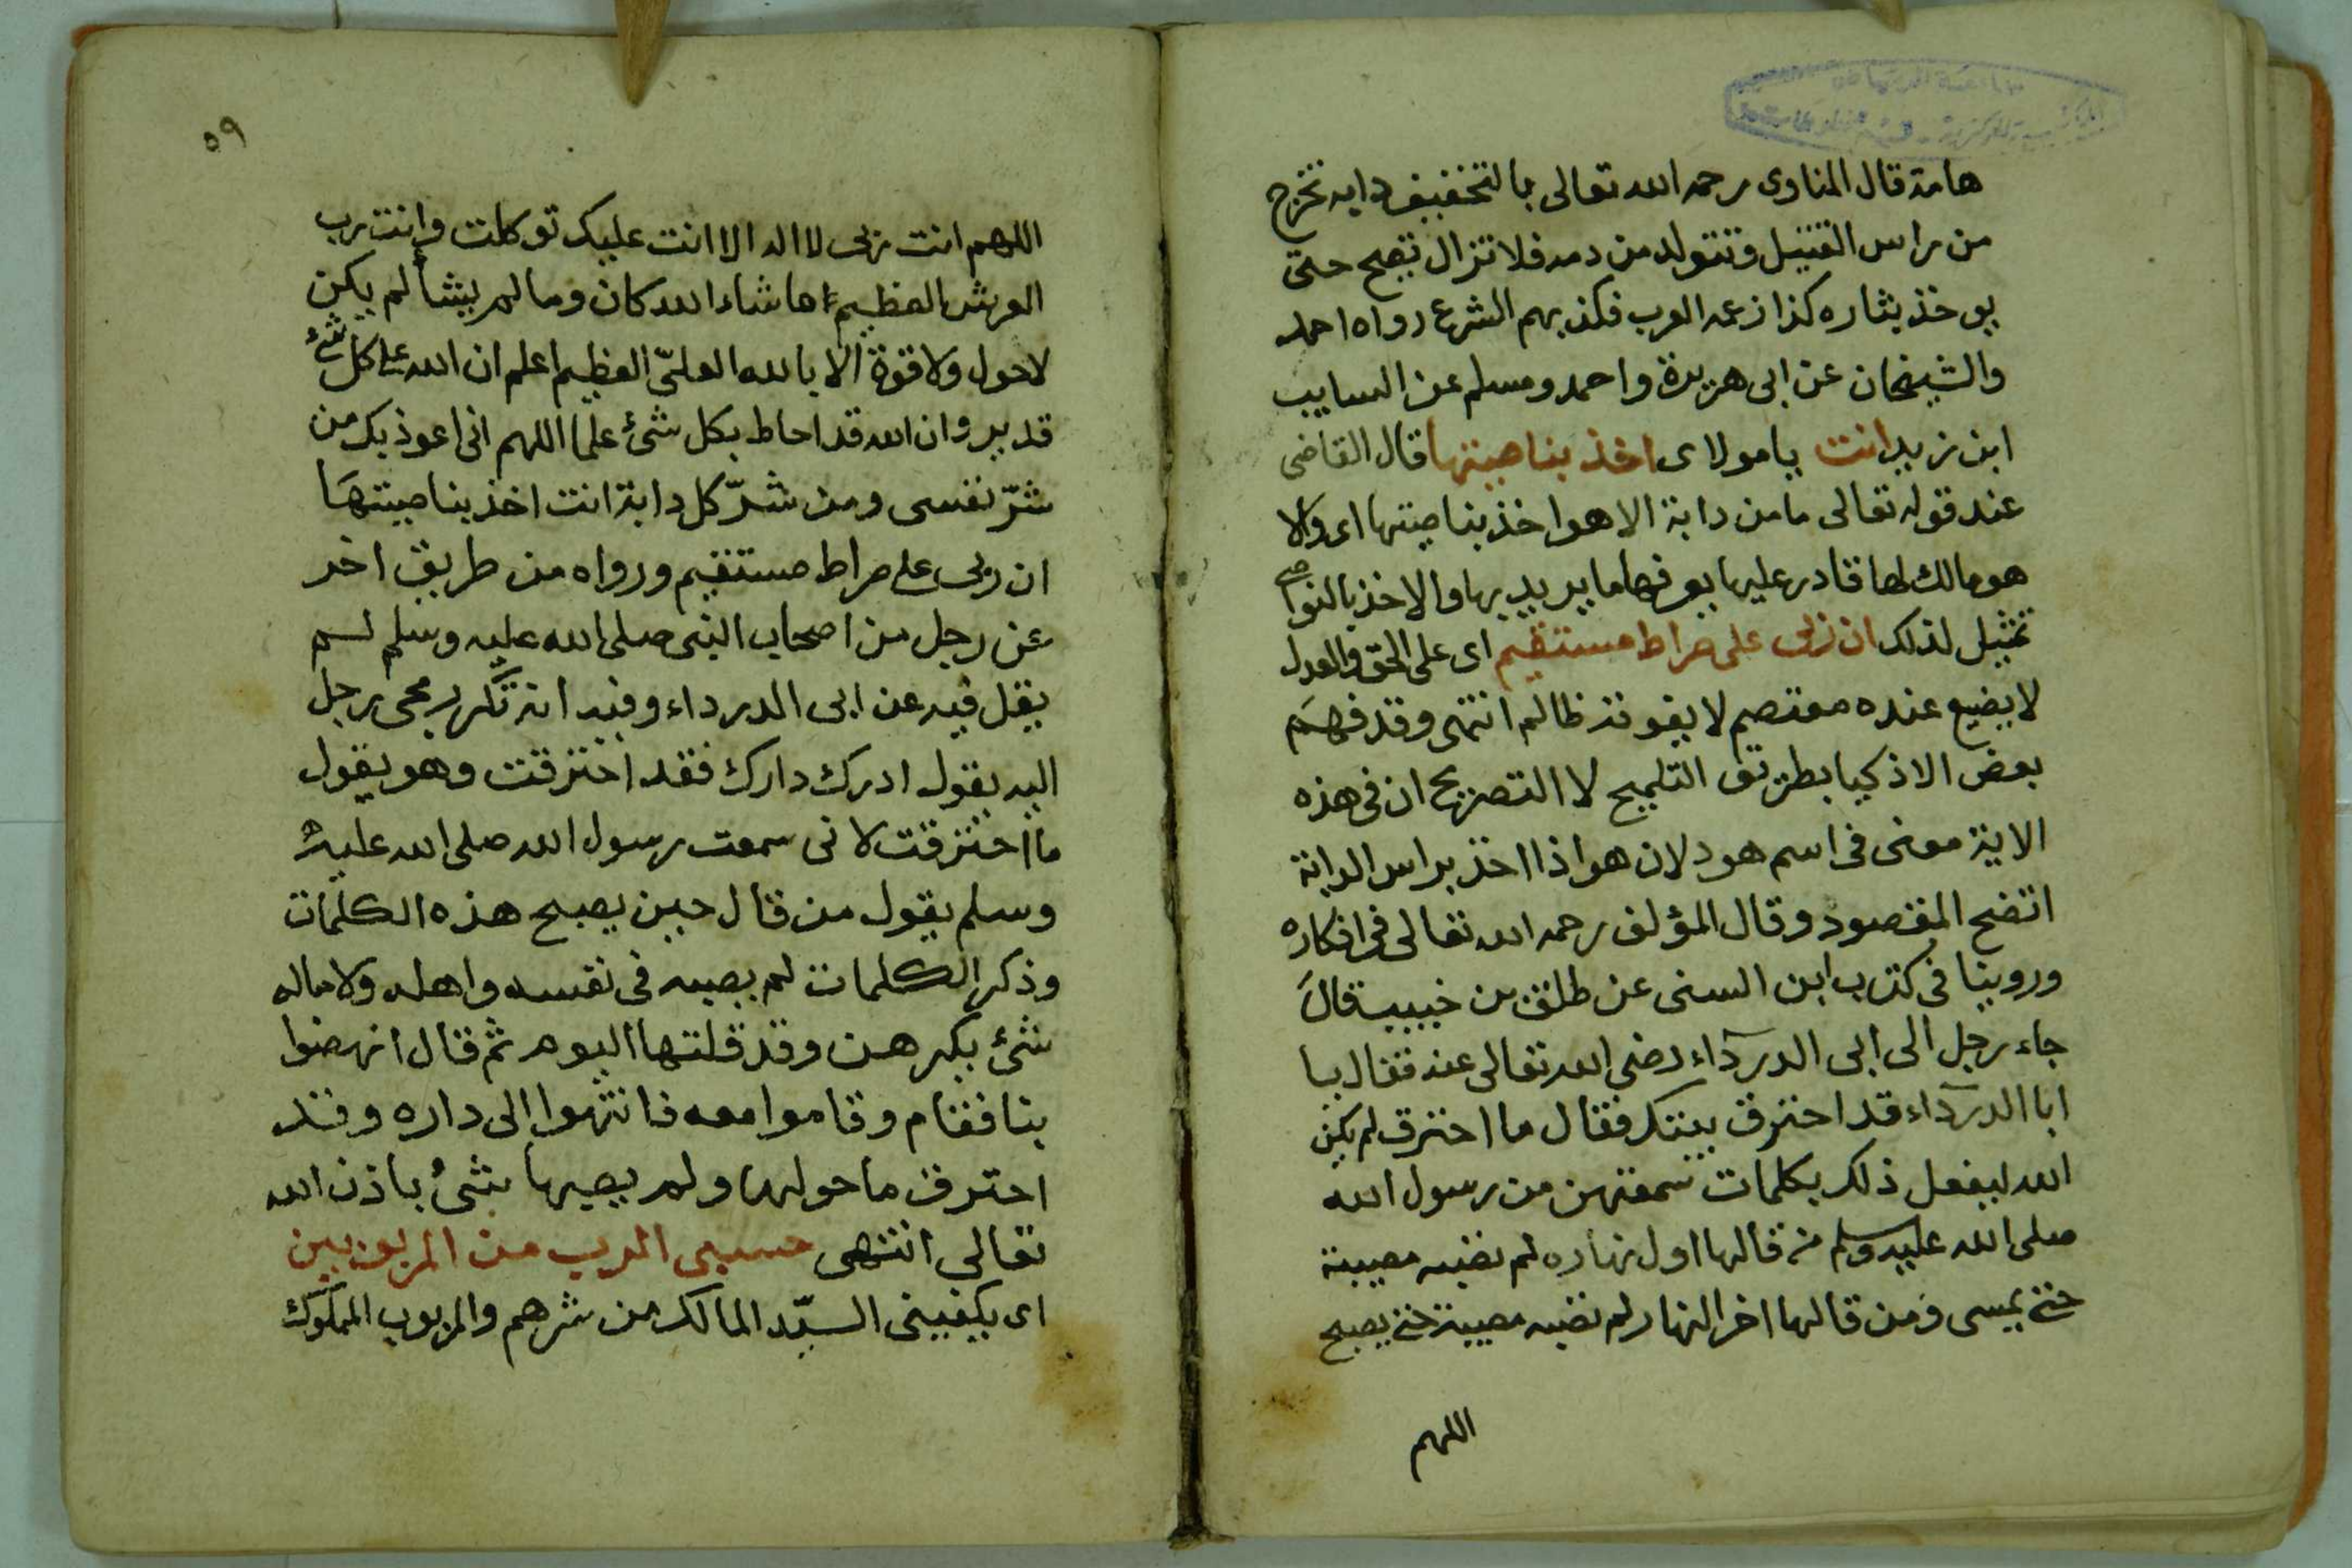 هامة قال المناوى رحمه الله تعالى بالتخفيف دابه تخرج
من راس القتيل وتتولد من دمه فلا تزال تصبح حتى
يوخذ بثاره كذا زعمه العرب فكذبهم الشرع رواه احمد
والشيخان عن ابى هريرة واحمد ومسلم عن السايب
ابن زيد انت يا مولاى اخذ بناصيتها قال القاضى
عند قوله تعالى ما من دابة الا هو اخذ بناصيتها اى والا
هو مالك لها قادر عليها يصرفها ما يريد بها والاخذ بالنواصى
تمثيل لذلك ان ربى على صراط مستقيم اى على الحق والعدل
لا يضيع عنده معتصم لا يفوته ظالم انتهى وقد فهم
بعض الاذكيا بطريق التلميح لا التصريح ان فى هذه
الاية معنى فى اسم هود لان هو اذا اخذ براس الدابة
اتضح المقصود وقال المؤلف رحمه الله تعالى فى اذكاره
وروينا فى كتب ابن السنى عن طلق بن خبيب قال
جاء رجل الى ابى الدرداء رضى الله تعالى عنه فقال يا
ابا الدرداء قد احترق بيتك فقال ما احترق لم يكن
الله ليفعل ذلك بكلمات سمعتهن من رسول الله
صلى الله عليه وسلم من قالها اول نهاره لم تصبه مصيبة
حتى يمسى ومن قالها اخر النهار لم تصبه مصيبة حتى يصبح
اللهم
٥٩
اللهم انت ربى لا اله الا انت عليك توكلت وانت رب
العرش العظيم ما شاء الله كان وما لم يشأ لم يكن
لا حول ولا قوة الا بالله العلىّ العظيم اعلم ان الله على كل شئ
قدير وان الله قد احاط بكل شئ علما اللهم انى اعوذ بك من
شرّ نفسى ومن شرّ كل دابة انت اخذ بناصيتها
ان ربى على صراط مستقيم ورواه من طريق اخر
عن رجل من اصحاب النبى صلى الله عليه وسلم لم
يقل فيه عن ابى الدرداء وفيه انه تكرر مجى رجل
اليه يقول ادرك دارك فقد احترقت وهو يقول
ما احترقت لانى سمعت رسول الله صلى الله عليه
وسلم يقول من قال حين يصبح هذه الكلمات
وذكر الكلمات لم يصبه فى نفسه واهله ولا ماله
شئ يكرهه وقد قلتها اليوم ثم قال انهضوا
بنا فقام وقاموا معه فانتهوا الى داره وقد
احترق ما حولها ولم يصبها شئ باذن الله
تعالى انتهى حسبى الرب من المربوبين
اى يكفينى السيّد المالك من شرهم والمربوب المملوك